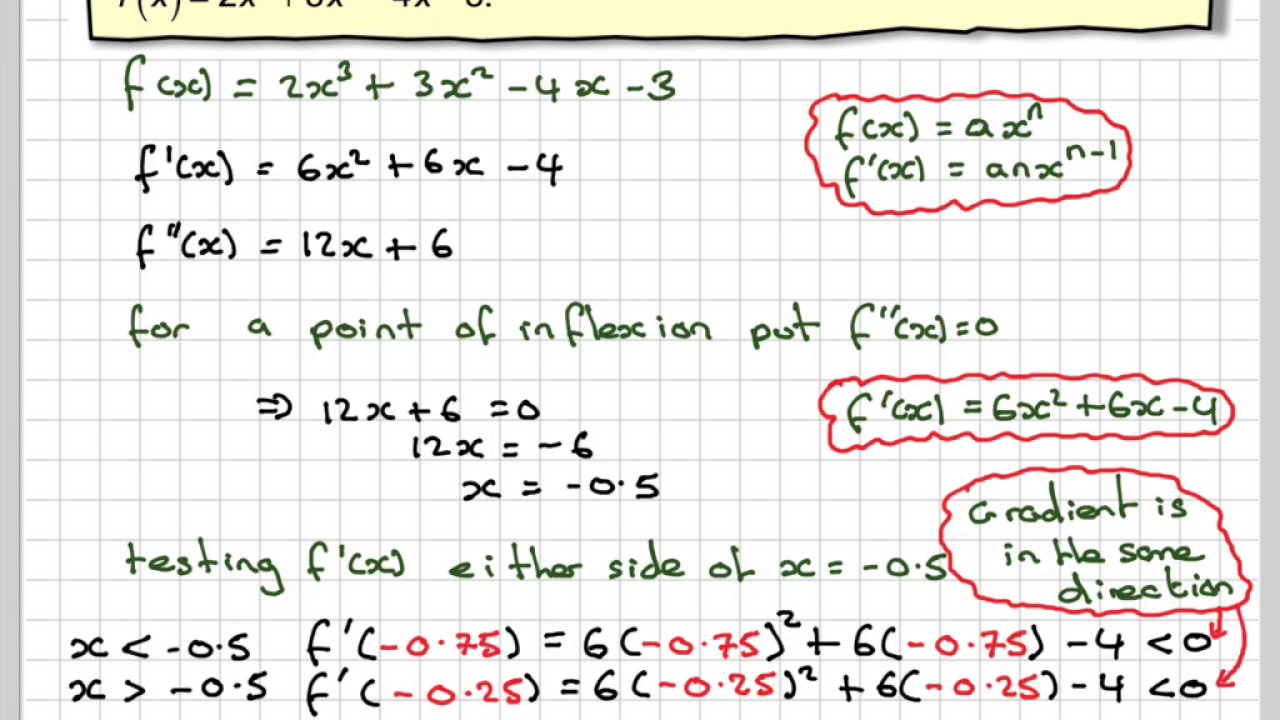 f(x) = 2x³ + 3x² - 4x - 3
f(x) = axⁿ
f'(x) = anxⁿ⁻¹
f'(x) = 6x² + 6x - 4
f"(x) = 12x + 6
for a point of inflexion put f"(x) = 0
⇒ 12x + 6 = 0
12x = -6
x = -0.5
f'(x) = 6x² + 6x - 4
Gradient is
in the same
direction
testing f'(x) either side of x = -0.5
x < -0.5 f'(-0.75) = 6(-0.75)² + 6(-0.75) - 4 < 0
x > -0.5 f'(-0.25) = 6(-0.25)² + 6(-0.25) - 4 < 0